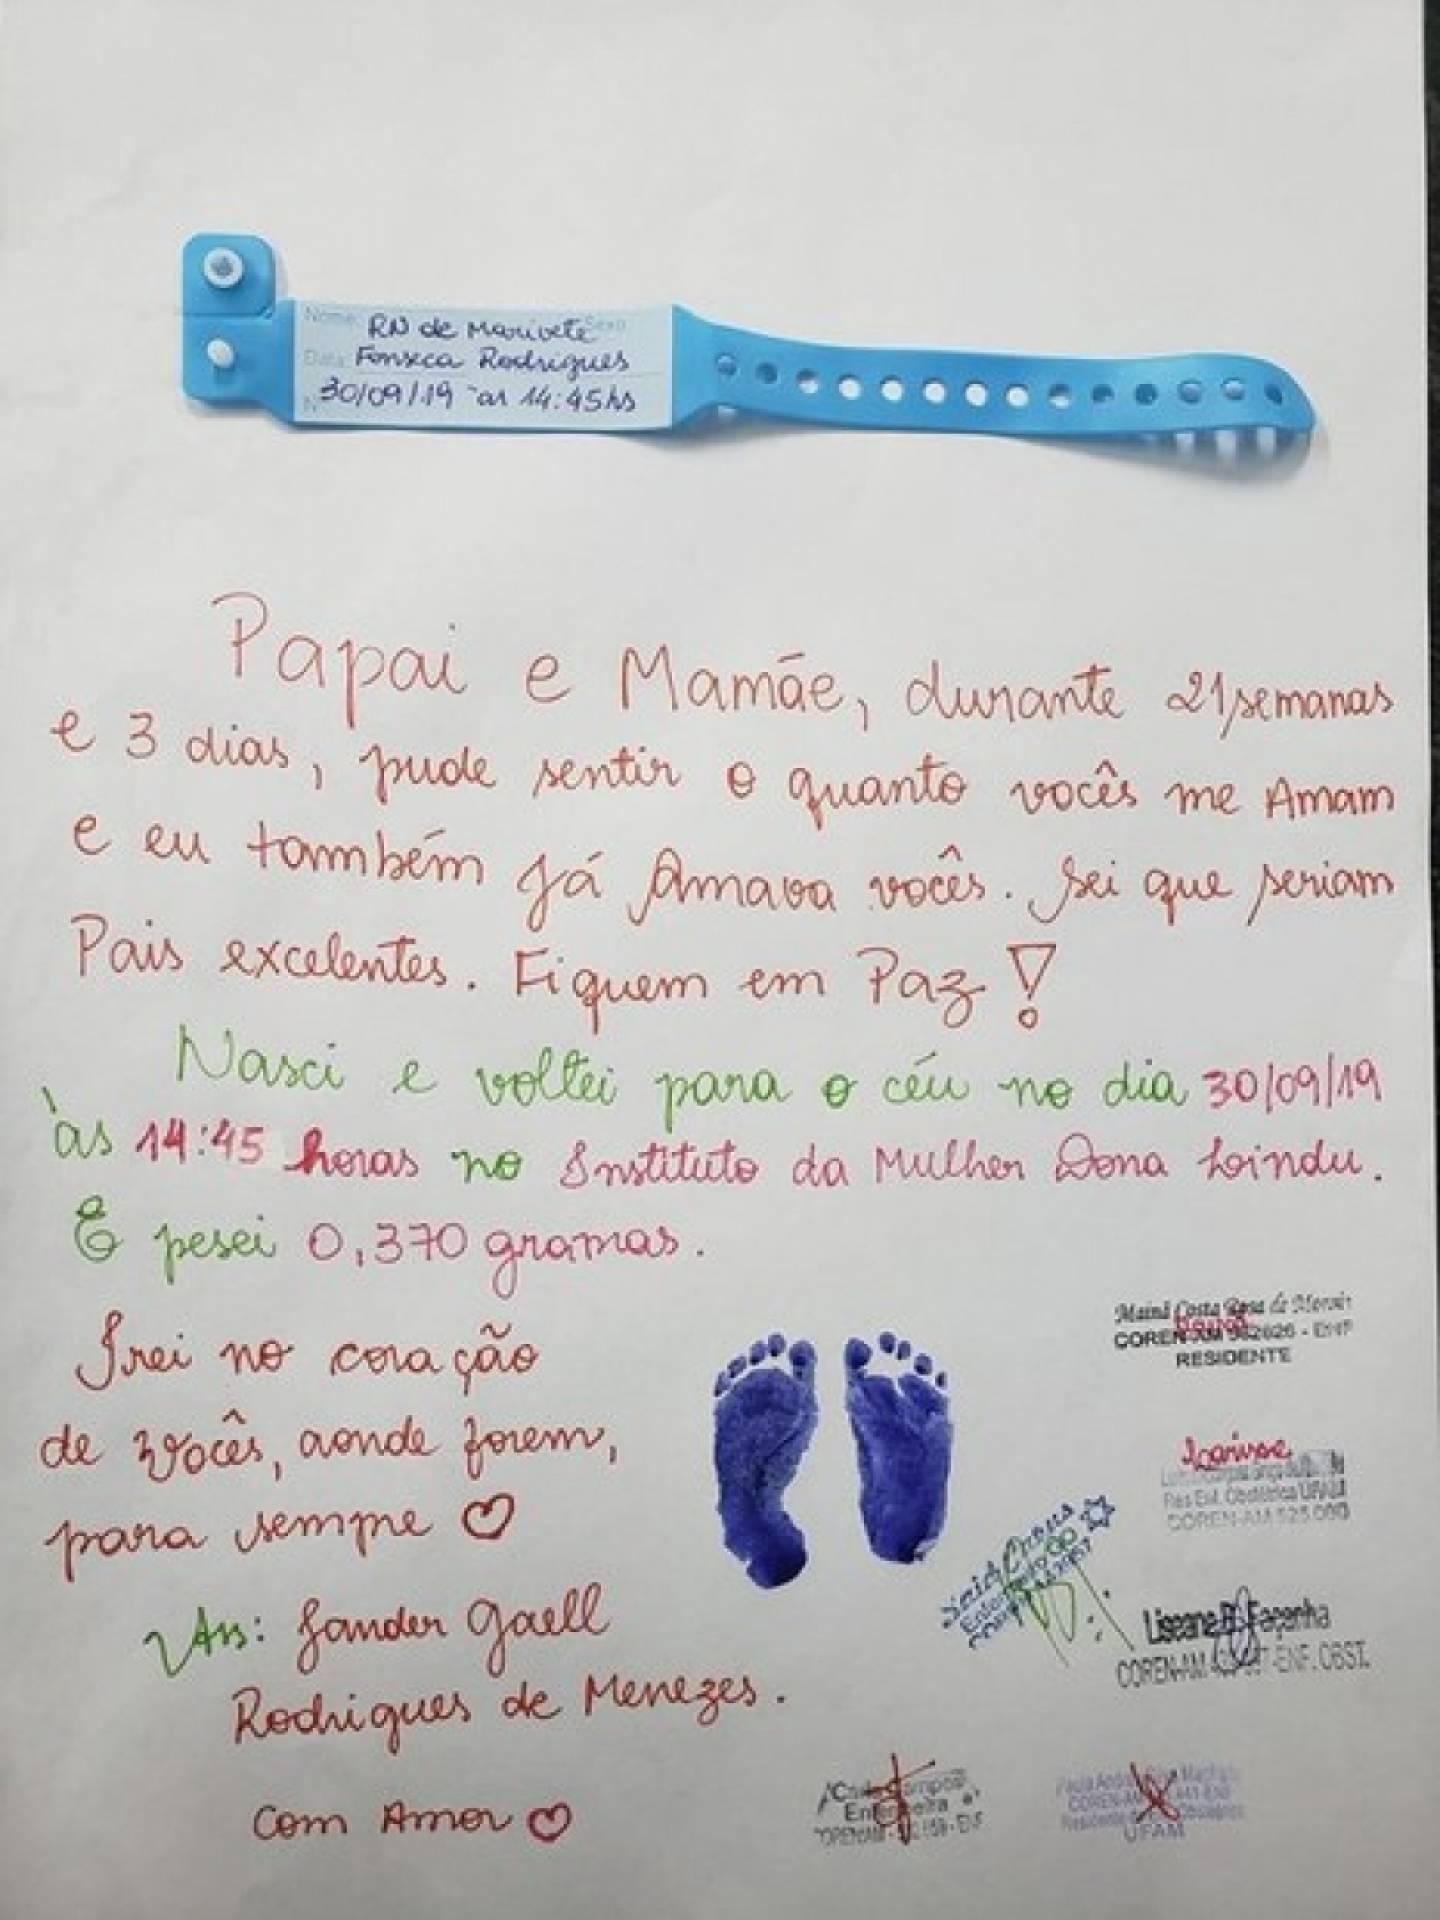 Nome: RN de Marivete Sexo
Data Fonseca Rodrigues
Nº 30/09/19 às 14:45hs
Papai e Mamãe, durante 21 semanas
e 3 dias, pude sentir o quanto vocês me Amam
e eu também já Amava vocês. Sei que seriam
Pais excelentes. Fiquem em Paz!
Nasci e voltei para o céu no dia 30/09/19
às 14:45 horas no Instituto da Mulher Dona Lindu.
E pesei 0,370 gramas.
Irei no coração
de vocês, aonde forem,
para sempre ♡
Ass: Sander Gaell
Rodrigues de Menezes.
Com Amor ♡
Mainá Costa Rosa de
COREN-AM
RESIDENTE
Larisse
Res Enf. Obstétrica UFAM
COREN-AM 525.000
Liseane Façanha
COREN-AM ENF. OBST.
Enfermeira
COREN-AM
UFAM